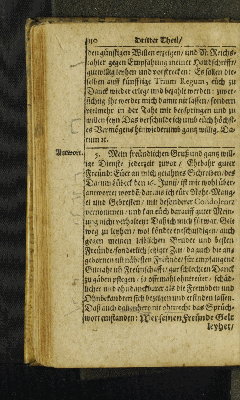 Dritter Theil/
den günstigen Willen erzeigen/ und N. Reichs-
thaler gegen Empfahung meiner Handschrifft/
gutwillig leyhen und vorstrecken: Es sollen die-
selben auff künfftige Traum Regum, euch zu
Danck wieder erlegt und bezahlt werden: zuver-
sichtig ihr werdet mich damit nit lassen/ sondern
vielmehr in der That
willen seyn Das verschulde ich umb euch höchs-
tes Vermögens hinwiederumb gantz willig. Da-
tum ꝛc.
Antwort.
5. Mein freundlichen Gruß und gantz willi-
ge Dienste jederzeit zuvor/ Ehrbaßt guter
Freund: Euer an mich gethanes Schreiben/ des
Datum Lübeck den 16. Junij/ ist mir wohl über-
antwortet worden/ daraus ich eure Nohe Mang-
el und Gebrechen/ mit besonderer Condolentz
vernommen/ und kan euch darauff guter Mein-
ung nicht verhalten: Daß ich mich
zu legen/ wol könte entschuldigen/ auch
gegen meinen leiblichen Bruder und besten
Freunde/ sonderlich jetziger Zeit/ da auch die an-
gebornen nit nähesten Freunde/ für empfangene
Gutthat und Freundschafft/ gar schlechten Danck
zu geben pflegen/ ja offtmahl untreuer/ schäd-
licher und ohndanckbarer als die Frembden und
Ohnbekandten sich bezeigen und erfinden lassen.
Daß auch dannenhero nit ohnrecht das Sprüch-
wort entstanden: Wer seinen Freunde Gelt
leyhet/